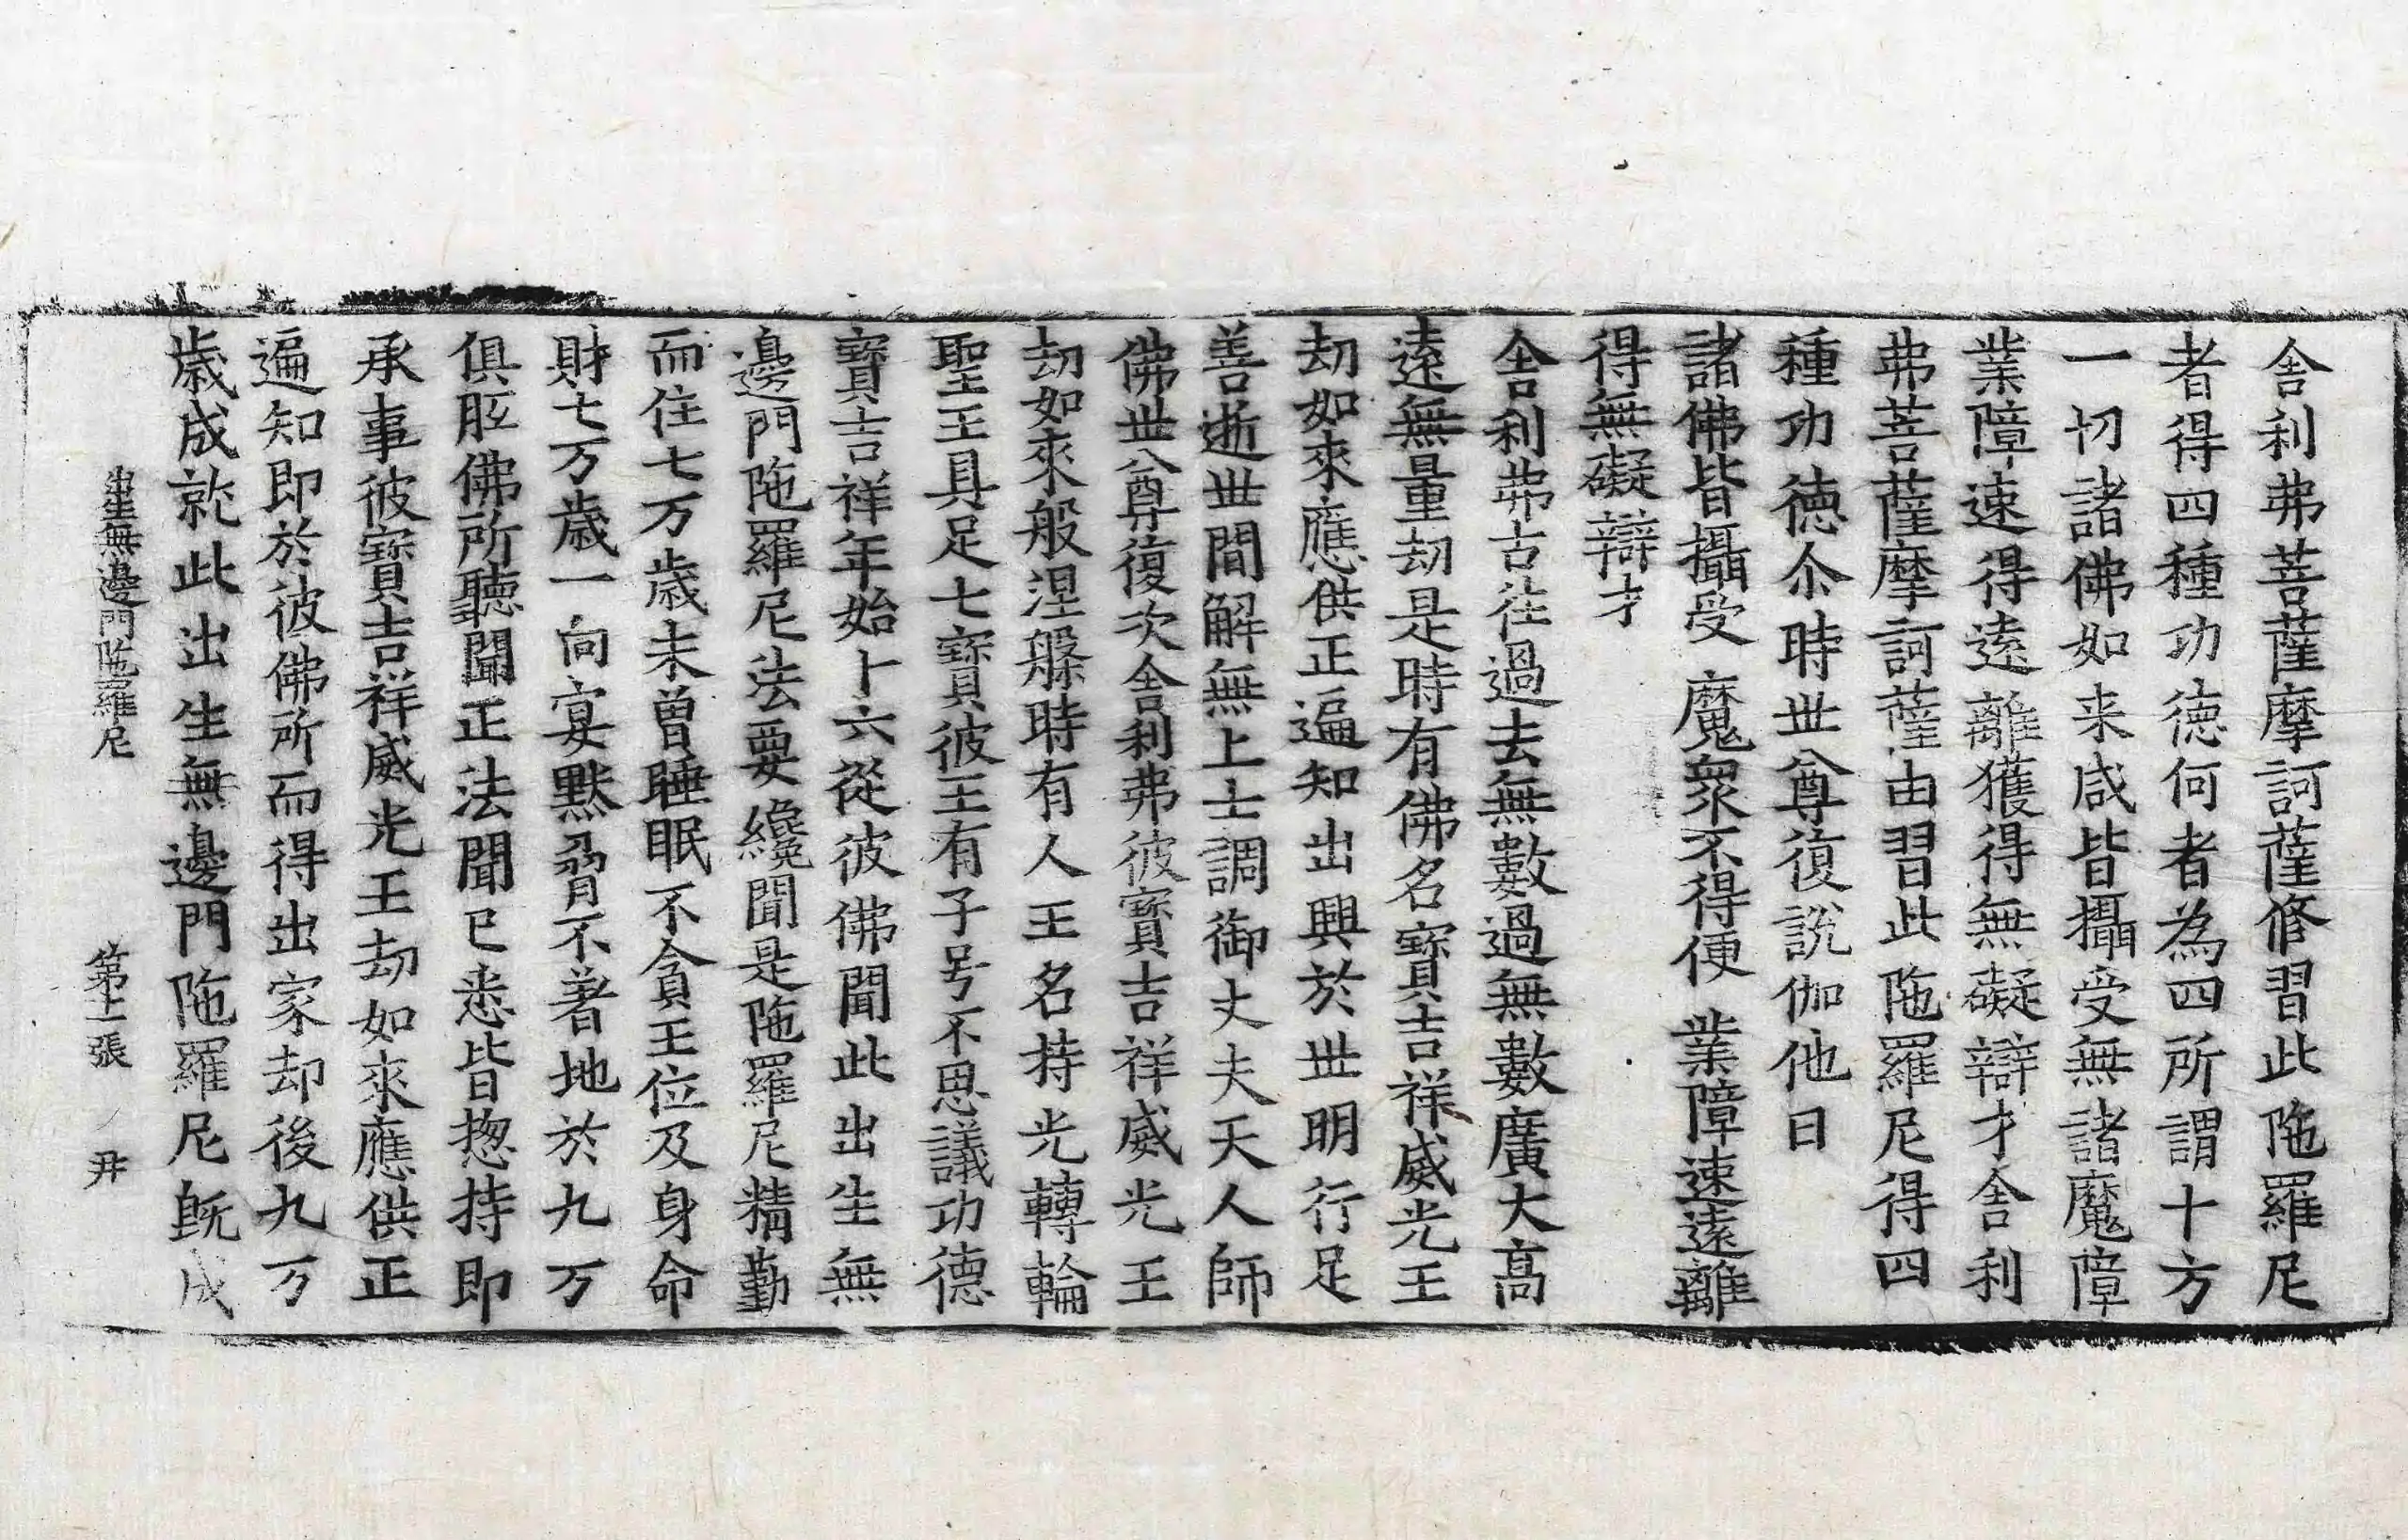 舍利弗菩薩摩訶薩修習此陁羅尼
者得四種功徳何者為四所謂十方
一切諸佛如来咸皆攝受無諸魔障
業障速得遠離獲得無礙辯才舍利
弗菩薩摩訶薩由習此陁羅尼得四
種功徳尒時世尊復說伽他曰
諸佛皆攝受　魔衆不得便　業障速遠離
得無礙辯才
舍利弗古往過去無數過無數廣大高
遠無量劫是時有佛名寶吉祥威光王
劫如來應供正遍知出興於世明行足
善逝世間解無上士調御丈夫天人師
佛世尊復次舍利弗彼寶吉祥威光王
劫如來般涅槃時有人王名持光轉輪
聖王具足七寶彼王有子号不思議功德
寶吉祥年始十六從彼佛聞此出生無
邊門陁羅尼法要纔聞是陁羅尼精勤
而住七万歳未曾睡眠不貪王位及身命
財七万歳一向宴黙脅不著地於九万
俱胝佛所聽聞正法聞已悉皆揔持即
承事彼寶吉祥威光王劫如來應供正
遍知即於彼佛所而得出家却後九万
歳成就此出生無邊門陁羅尼旣成
出生無邊門陁羅尼　第十一張　丹